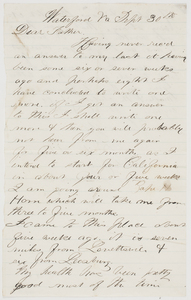 Waterford Va Sept 30th
Dear Father
Having never recd
an answer to my last it having
been some six or seven weeks
ago and perhaps eight I
have concluded to write one
more, if I get an answer
to this I shall write one
more & then you will probably
not hear from me again
for five or six months as it
intend to start for California
in about four or five weeks
I am going around Cape
Horn which will take me from
three to five months.
I came to this place about
five weeks ago it is seven
miles from
six from Leesburg
My health has been pretty
good most of the time